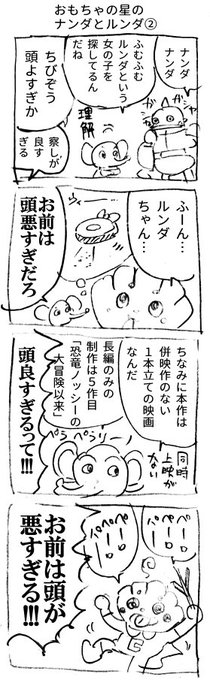 おもちゃの星の
ナンダとルンダ②
ナンダ
ナンダ
ガシャ
ふむふむ
ルンダという
女の子を
探してるん
だね
理解
ちびぞう
頭よすぎか
察しが
良す
ぎる
ふーん…
ルンダ
ちゃん…
お前は
頭悪すぎだろ
ちなみに本作は
併映作のない
1本立ての映画
なんだ
同時
上映が
ない
長編のみの
制作は5作目
「恐竜ノッシーの
大冒険以来」
ぺらぺらり
頭良すぎるって!!!
パーパー
パーパー
お前は頭が
悪すぎる!!!